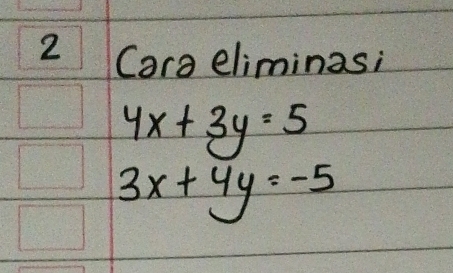 2 Cara eliminasi
4x + 3y = 5
3x + 4y = -5